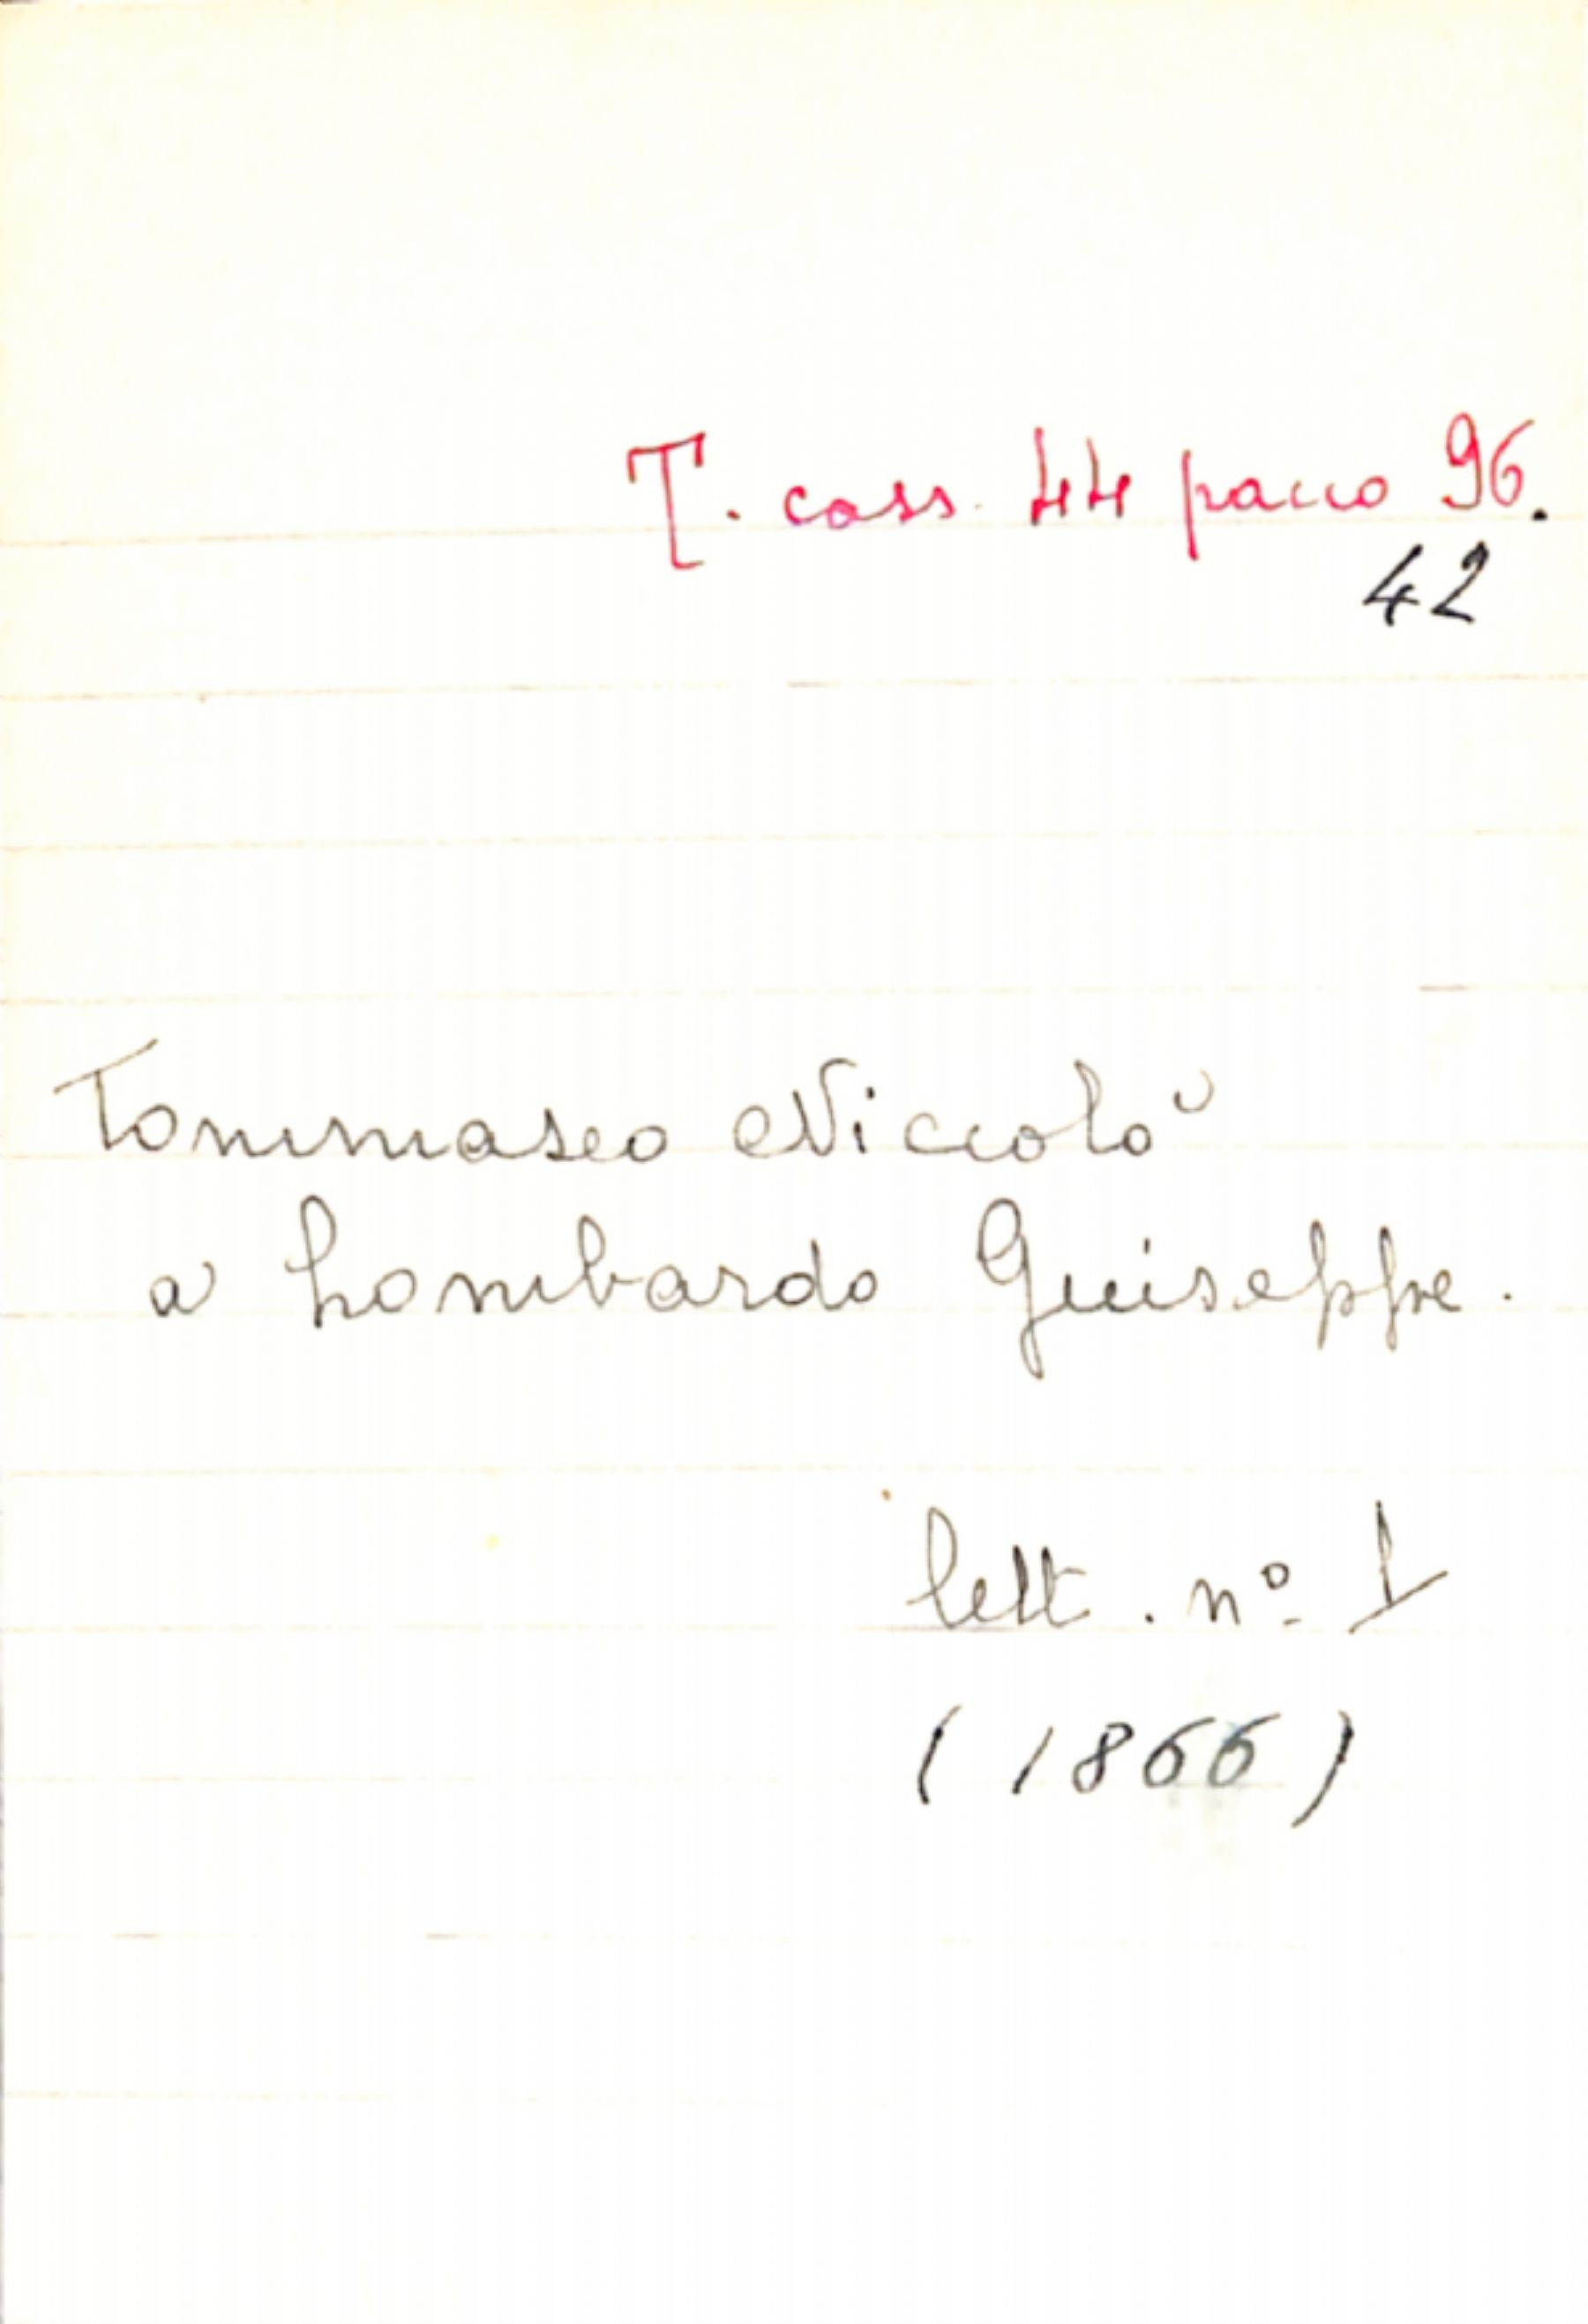 T. cass. 44 pacco 96.
42
Tommaseo Niccolò
a Lombardo Giuseppe.
lett. nº 1
(1866)